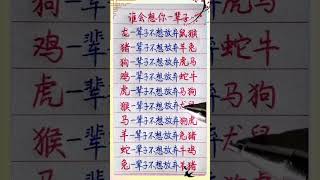 谁会想你一辈子?
龙一辈子不想放弃鼠猴
猪一辈子不想放弃羊兔
狗一辈子不想放弃虎马
鸡一辈子不想放弃蛇牛
虎一辈子不想放弃马狗
猴一辈子不想放弃龙鼠
马一辈子不想放弃狗虎
羊一辈子不想放弃兔猪
蛇一辈子不想放弃牛鸡
兔一辈子不想放弃猪